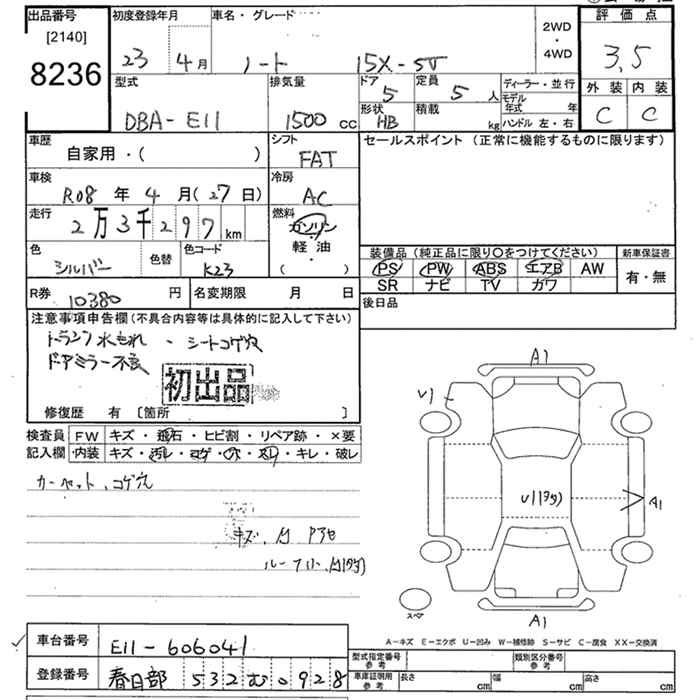 出品番号 初度登録年月 車名・グレード 2WD・4WD 評価点
[2140]
8236 23 4月 ノート 15X-SV 3.5
型式 排気量 ドア 定員 ディーラー・並行 外装 内装
DBA-E11 1500cc 5 5人 モデル年式 年 C C
形状 積載 ハンドル 左・右
HB kg
車歴 シフト セールスポイント (正常に機能するものに限ります)
自家用・( ) FAT
車検 冷房
R08年4月(27日) AC
走行 燃料
2万3千297km ガソリン
軽油
( )
色 色替 色コード 装備品 (純正品に限り〇をつけてください) 新車保証書
シルバー K23 PS PW ABS エアB AW 有・無
SR ナビ TV ガワ
R券 10380円 名変期限 月 日 後日品
注意事項申告欄(不具合内容等は具体的に記入して下さい)
トランク水もれ ・シートコゲ穴
ドアミラー不良
初出品
修復歴 有 [箇所 ]
検査員 FW キズ・飛石・ヒビ割・リペア跡・×要
記入欄 内装 キズ・汚レ・コゲ・穴・スレ・キレ・破レ
カーペット、コゲ穴
キズ、
A1
U1
A1
A1
スペア
A-キズ E-エクボ U-凹み W-補修跡 S-サビ C-腐食 XX-交換済
車台番号 E11-606041
登録番号 春日部 532 む 0928
型式指定番号 参考 類別区分番号 参考
車庫証明用 参考 長さ cm 幅 cm 高さ cm